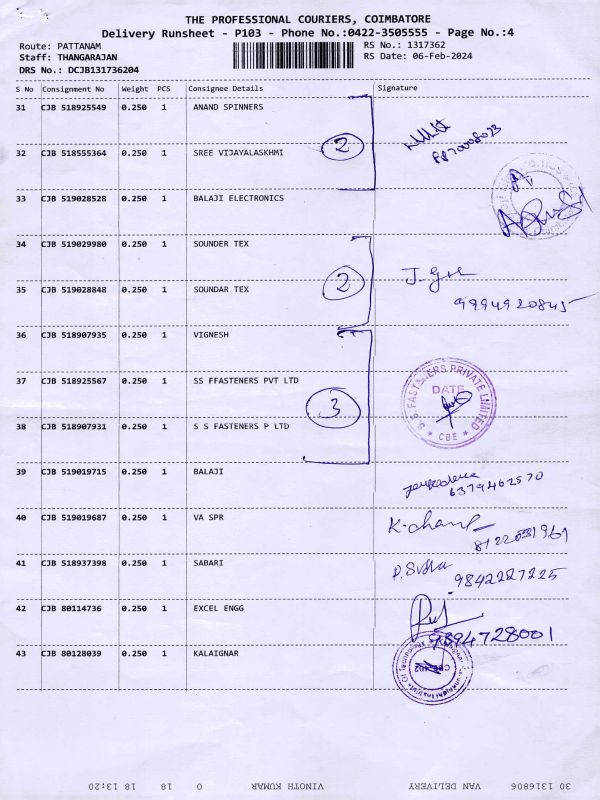 THE PROFESSIONAL COURIERS, COIMBATORE
Delivery Runsheet - P103 - Phone No.:0422-3505555 - Page No.:4
Route: PATTANAM
RS No.: 1317362
Staff: THANGARAJAN
RS Date: 06-Feb-2024
DRS No.: DCJB131736204
S No Consignment No Weight PCS Consignee Details Signature
31 CJB 518925549 0.250 1 ANAND SPINNERS
2
32 CJB 518555364 0.250 1 SREE VIJAYALASKHMI
33 CJB 519028528 0.250 1 BALAJI ELECTRONICS
34 CJB 519029980 0.250 1 SOUNDER TEX
2
35 CJB 519028848 0.250 1 SOUNDAR TEX
9994920845
36 CJB 518907935 0.250 1 VIGNESH
37 CJB 518925567 0.250 1 SS FFASTENERS PVT LTD
S.S FASTENERS PRIVATE LIMITED
DATE
* CBE *
3
38 CJB 518907931 0.250 1 S S FASTENERS P LTD
39 CJB 519019715 0.250 1 BALAJI
6379462570
40 CJB 519019687 0.250 1 VA SPR
41 CJB 518937398 0.250 1 SABARI
9842227225
42 CJB 80114736 0.250 1 EXCEL ENGG
9894728001
43 CJB 80128039 0.250 1 KALAIGNAR
30 1316806 VAN DELIVERY VINOTH KUMAR 0 18 18 13:20